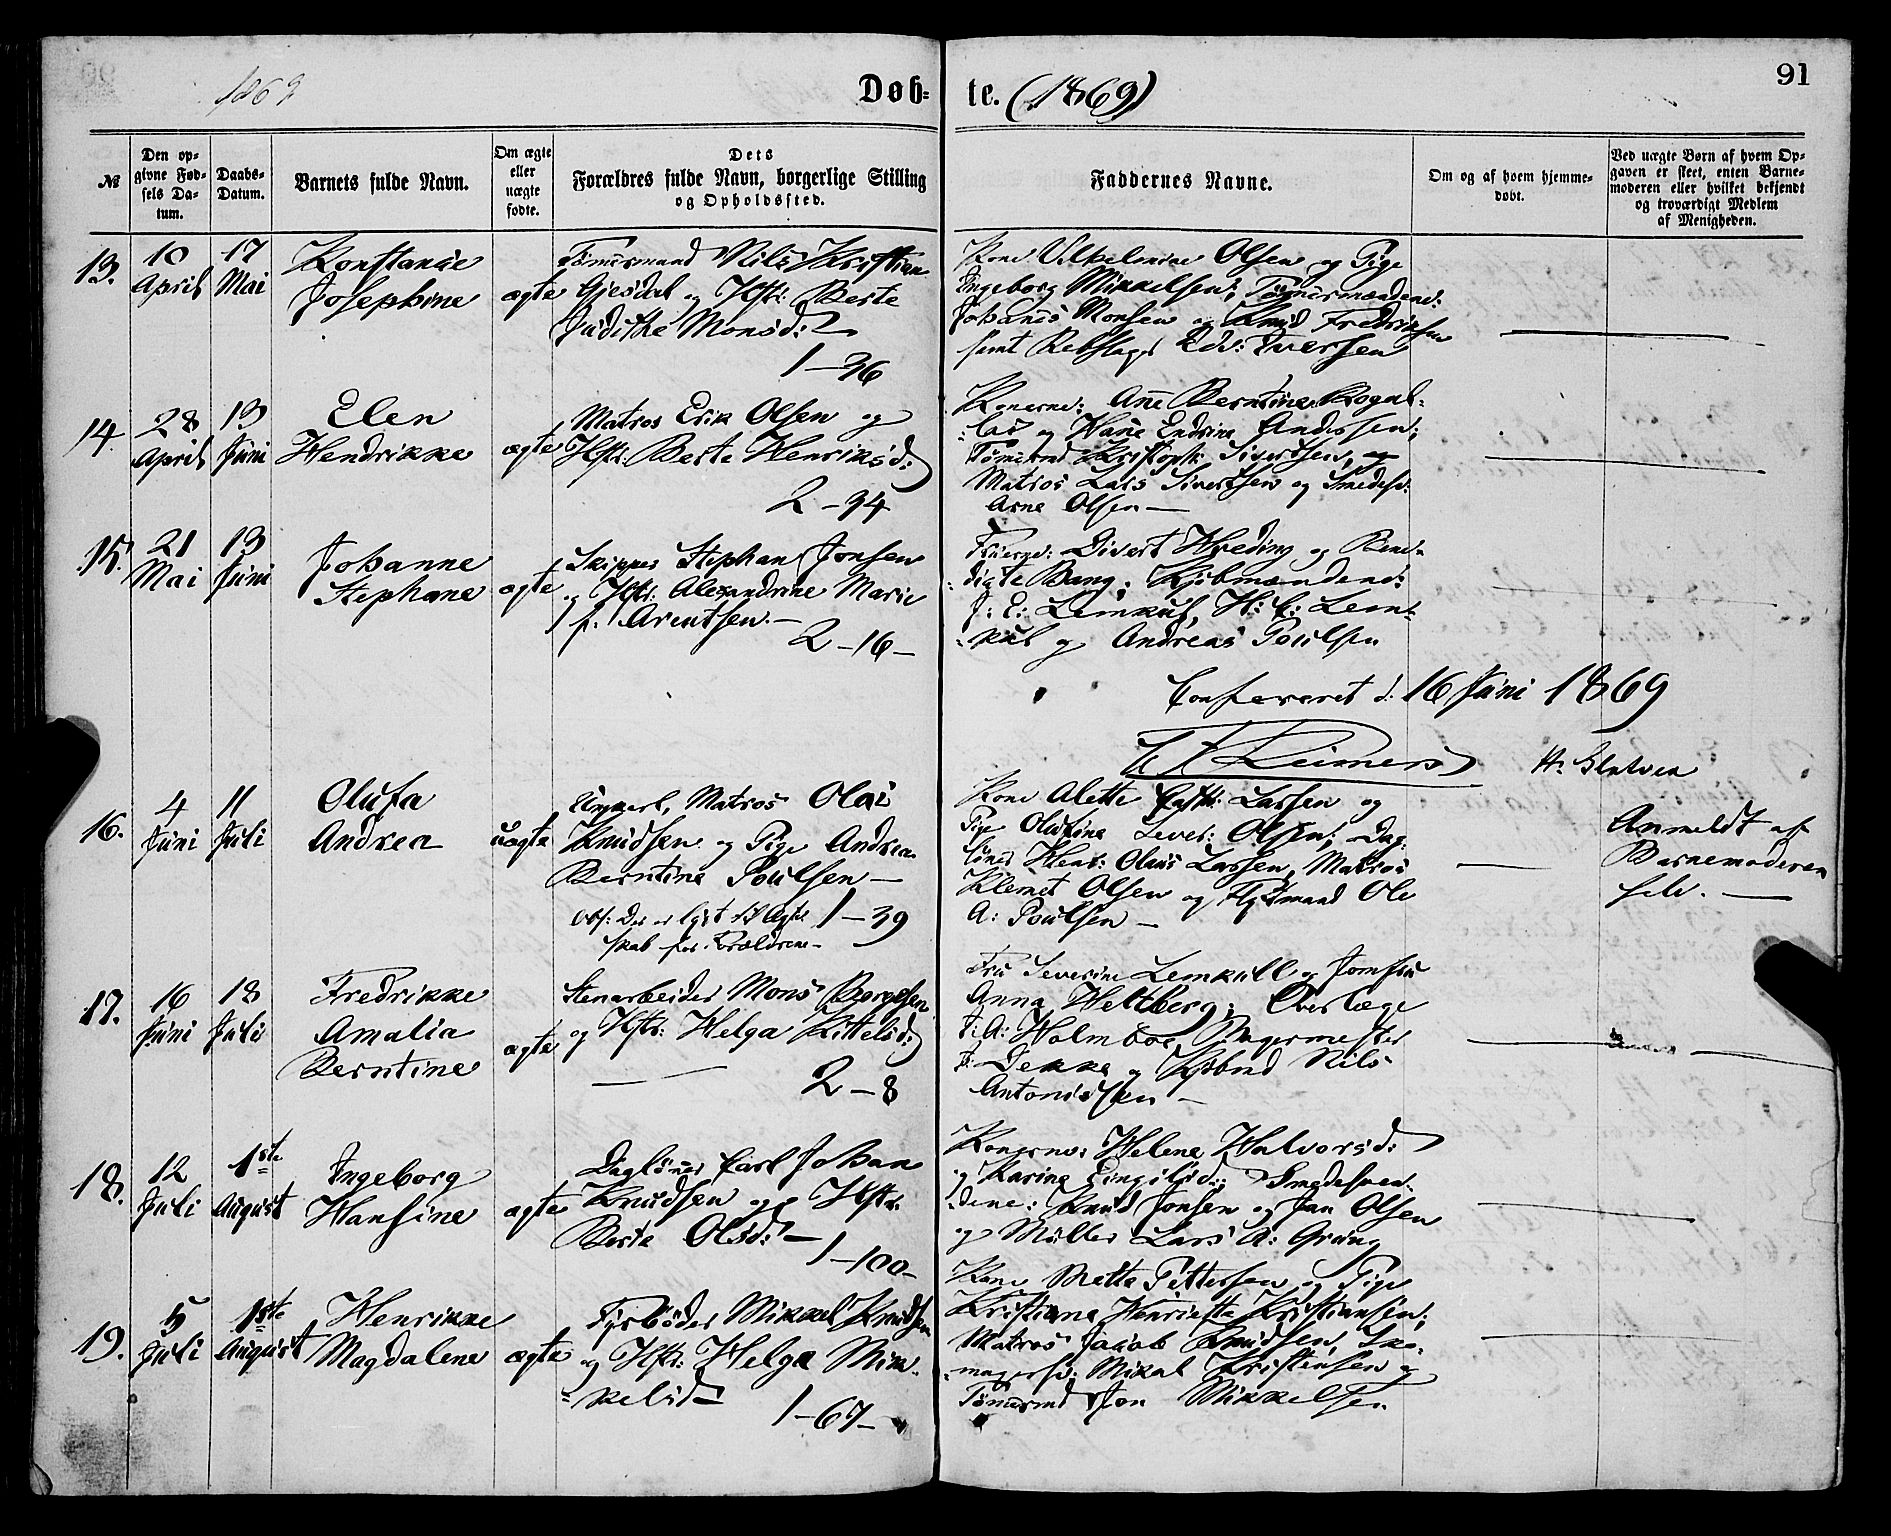 1869
Døb-
te. (1869)
91
№
Den op-
givne Fød-
sels Da-
tum.
Daabs-
Datum.
Barnets fulde Navn.
Om ægte
eller
uægte
fødte.
Dets
Forældres fulde Navn, borgerlige Stilling
og Opholdssted.
Faddernes Navne.
Om og af hvem hjemme-
døbt.
Ved uægte Børn af hvem Op-
gaven er skeet, enten Barne-
moderen eller hvilket bekjendt
og troværdigt Medlem
af Menigheden.
13.
10
April
17
Mai
Konstanse
Josephine
ægte
Tømermand Nils Kristian
Gjesdal og Hstr: Berte
Judithe Monsd:
1-36
Kone Vilhelmine Olsen og Pige
Ingeborg Mikkelsen; Tømermændene:
Johanes Monsen og Knud Fredriksen
samt Rebslager Edv: Iversen
14.
28
April
13
Juni
Elen
Hendrikke
ægte
Matros Erik Olsen og
Hstr: Berte Henriksd:
2-34
Konerne: Ane Berntine
og Hane Endrine Andersen;
Tømermd Kristoph: Sivertsen, og
Matros Lars Sivertsen og Smedesv:
Arne Olsen
15.
21
Mai
13
Juni
Johanne
Stephane
ægte
Skipper Stephan Jonsen
og Hstr: Alexandrine Marie
f. Arentsen.
2-16-
Fruerne: Divert Hveding og Bene-
digte Bang; Kjøbmændene:
J: E: Lemkul, H: C: Lem-
kul og Andreas Poulsen
Confereret d: 16 Juni 1869
Reimers
16.
4
Juni
11
Juli
Olufa
Andrea
uægte
Ungkarl, Matros Olai
Knudsen og Pige Andrea
Berntine Poulsen
Obs: Der er lyst til Ægte
skab for Forældrene
1-39
Kone Alette Cath: Larsen og
Pige Olufine Sever: Olsen; Dag-
løner Hans: Olaus Larsen, Matros
Klemet Olsen og Mand Ole
A: Poulsen
Anmeldt af
Barnemoderen
selv.
17.
16
Juni
18
Juli
Fredrikke
Amalia
Berntine
ægte
Stenarbeider Mons Børgesen
og Hstr: Helga Kittelsd:
2-8
Fru Severine Lemkull og Jomfru
Anna Heltberg; Overlæge
J: A: Holmboe, Bagermester
Dekke og Kjøbmd Nils
Antonissen
18.
12
Juli
1ste
August
Ingeborg
Hansine
ægte
Dagløner Carl Johan
Knudsen og Hstr:
Berte Olsd:
1-100-
Konerne: Helene Halvorsd:
og Karine Lingilsd:; Smedesven-
dene: Knud Jonsen og Jan Olsen
og Møller Lars A: Grung
19.
5
Juli
1ste
August
Henrikke
Magdalene
ægte
Fyrbøder Mikkel Knudsen
og Hstr: Helga Mik-
kelsd
1-67-
Kone Mette Pettersen og Pige
Kristiane Henriette Kristiansen;
Matros Jacob Knudsen, Sko-
magersv: Mikal Kristensen og
Tømermd Jon Mikkelsen